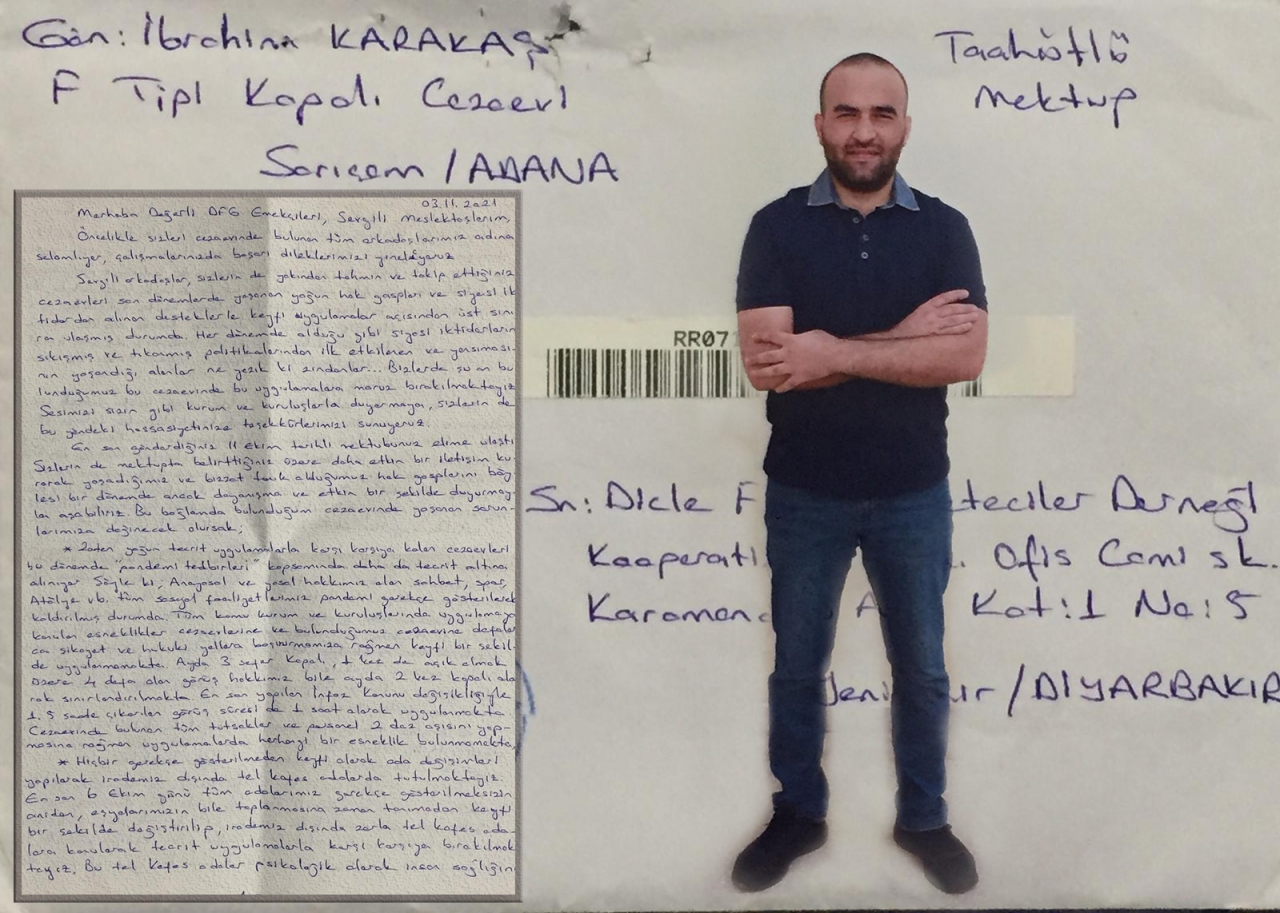 Gön: İbrahim KARAKAŞ
F Tipi Kapalı Cezaevi
Sarıçam / ADANA
Taahütlü
Mektup
03.11.2021
Merhaba Değerli DFG Emekçileri, Sevgili Meslektaşlarım,
Öncelikle sizleri cezaevinde bulunan tüm arkadaşlarımız adına
selamlıyor, çalışmalarınızda başarı dileklerimizi yineliyoruz
Sevgili arkadaşlar, sizlerin de yakından tahmin ve takip ettiğiniz
cezaevleri son dönemlerde yaşanan yoğun hak gaspları ve siyasi ik
tidardan alınan desteklerle keyfi uygulamalar açısından üst sını
ra ulaşmış durumda. Her dönemde olduğu gibi siyasi iktidarların
sıkışmış ve tıkanmış politikalarından ilk etkilenen ve yansıması-
nın yaşandığı alanlar ne yazık ki zindanlar... Bizlerde şu an bu
lunduğumuz bu cezaevinde bu uygulamalara maruz bırakılmaktayız
Sesimizi sizin gibi kurum ve kuruluşlarla duyurmaya, sizlerin de
bu yöndeki hassasiyetinize teşekkürlerimizi sunuyoruz.
En son gönderdiğiniz 11 Ekim tarihli mektubunuz elime ulaştı
Sizlerin de mektupta belirttiğiniz üzere daha etkin bir iletişim ku-
rarak yaşadığımız ve bizzat tanık olduğumuz hak gasplarını böy-
lesi bir dönemde ancak dayanışma ve etkin bir şekilde duyurmay-
la aşabiliriz. Bu bağlamda bulunduğum cezaevinde yaşanan sorun-
larımıza değinecek olursak;
* Zaten yoğun tecrit uygulamalarla karşı karşıya kalan cezaevleri
bu dönemde "pandemi tedbirleri" kapsamında daha da tecrit altına
alınıyor Şöyle ki, Anayasal ve yasal hakkımız olan sohbet, spor,
Atölye vb. tüm sosyal faaliyetlerimiz pandemi gerekçe gösterilerek
kaldırılmış durumda. Tüm kamu kurum ve kuruluşlarında uygulamaya
konulan esneklikler cezaevlerine ve bulunduğumuz cezaevine defalar
ca şikayet ve hukuki yollara başvurmamıza rağmen keyfi bir şekil-
de uygulanmamakta. Ayda 3 sefer kapalı, 1 kez de açık olmak
üzere 4 defa olan görüş hakkımız bile ayda 2 kez kapalı ola
rak sınırlandırılmakta. En son yapılan İnfaz Kanunu değişikliğiyle
1.5 saate çıkarılan görüş süresi de 1 saat olarak uygulanmakta
Cezaevinde bulunan tüm tutsaklar ve personel 2 doz aşısını yap-
masına rağmen uygulamalarda herhangi bir esneklik bulunmamakta,
* Hiçbir gerekçe gösterilmeden keyfi olarak oda değişimleri
yapılarak irademiz dışında tel kafes odalarda tutulmaktayız.
En son 6 Ekim günü tüm odalarımız gerekçe gösterilmeksizin
aniden, eşyalarımızın bile toplanmasına zaman tanımadan keyfi
bir şekilde değiştirilip, irademiz dışında zorla tel kafes oda-
lara konularak tecrit uygulamalarla karşı karşıya bırakılmak
tayız. Bu tel kafes odalar psikolojik olarak insan sağlığını
RR07
Sn: Dicle F teciler Derneği
Kooperati . Ofis Cami sk.
Karaman A Kat:1 No:5
Yeni ir / DİYARBAKIR